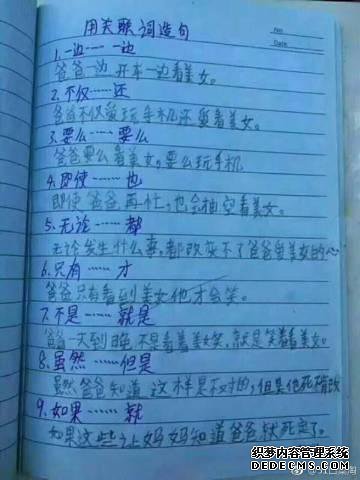 No.
Date
用关联词造句
1.一边……一边
爸爸一边开车一边看美女。
2.不仅……还
爸爸不仅爱玩手机还爱看美女。
3.要么……要么
爸爸要么看美女，要么玩手机
4.即使……也
即使爸爸再忙，也会抽空看美女。
5.无论……都
无论发生什么事，都改变不了爸爸爱美女的心
6.只有……才
爸爸只有看到美女他才会笑。
7.不是……就是
爸爸一天到晚不是看着美女笑，就是笑着看美女。
8.虽然……但是
虽然爸爸知道这样是不对的，但是他死不改
9.如果……就
如果这些让妈妈知道爸爸就死定了。
短文学内容管理系统
DUANWENXUE.COM